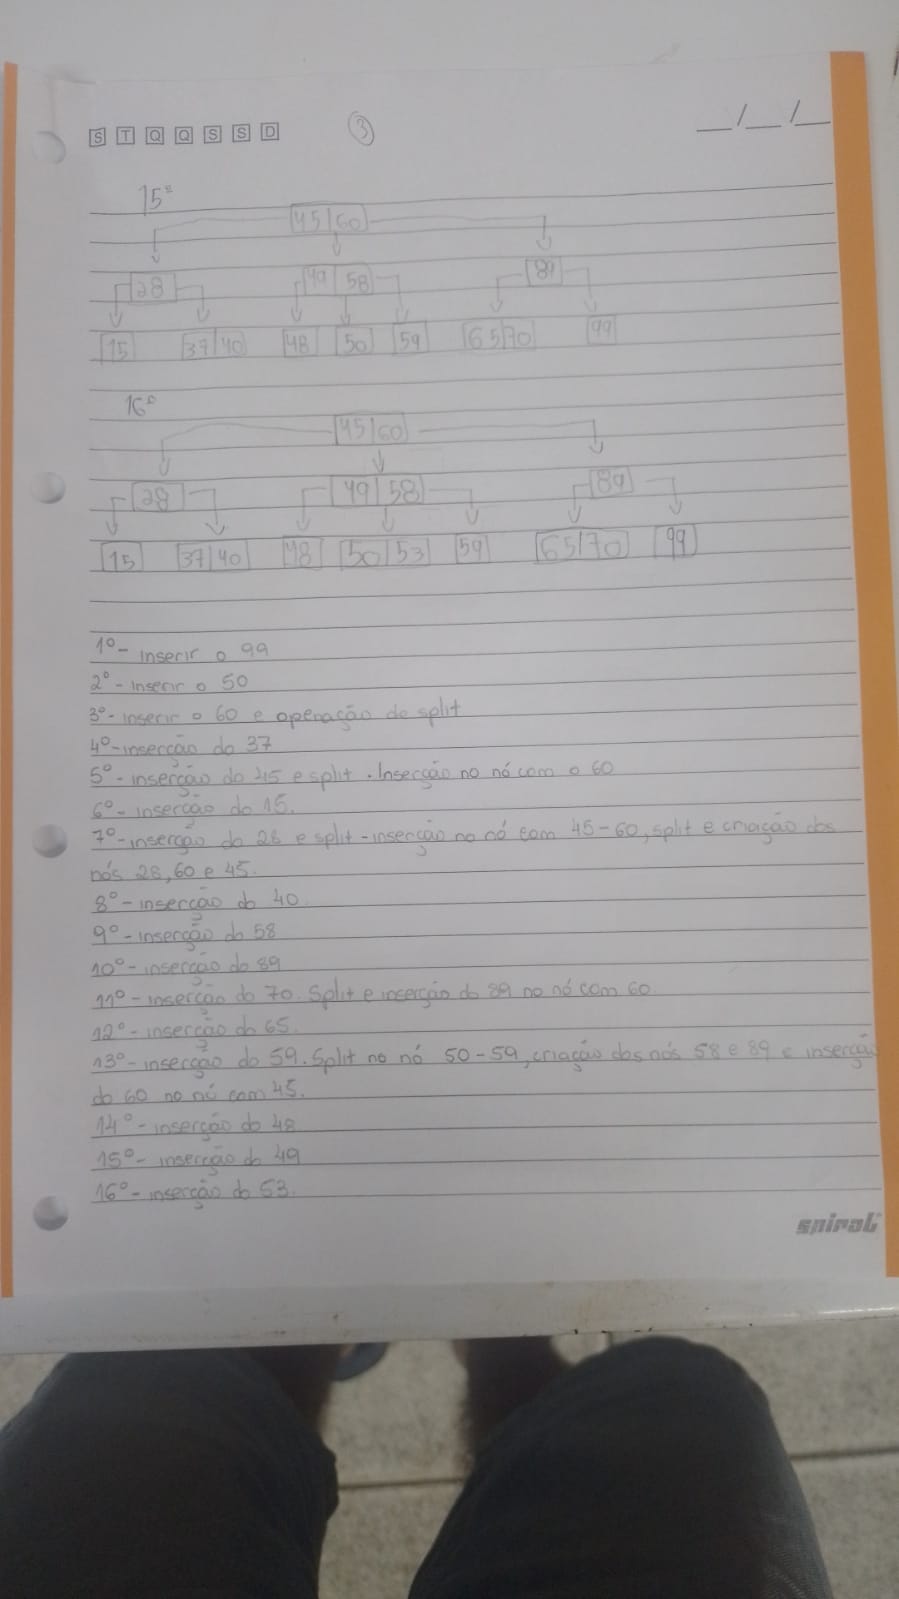 S T Q Q S S D
3
__/__/__
15º
45|60
28
49|58
89
15
37|40
48
50
59
65|70
99
16º
45|60
28
49|58
89
15
37|40
48
50|53
59
65|70
99
1º- Inserir o 99
2º- Inserir o 50
3º- Inserir o 60 e operação de split
4º- inserção do 37
5º- inserção do 45 e split. Inserção no nó com o 60
6º- inserção do 15.
7º- inserção do 28 e split - inserção no nó com 45-60, split e criação dos
nós 28, 60 e 45.
8º- inserção do 40
9º- inserção do 58
10º- inserção do 89
11º- inserção do 70. Split e inserção do 89 no nó com 60
12º- inserção do 65.
13º- inserção do 59. Split no nó 50-59, criação dos nós 58 e 89 e inserção
do 60 no nó com 45.
14º- inserção do 48
15º- inserção do 49
16º- inserção do 53.
spiral